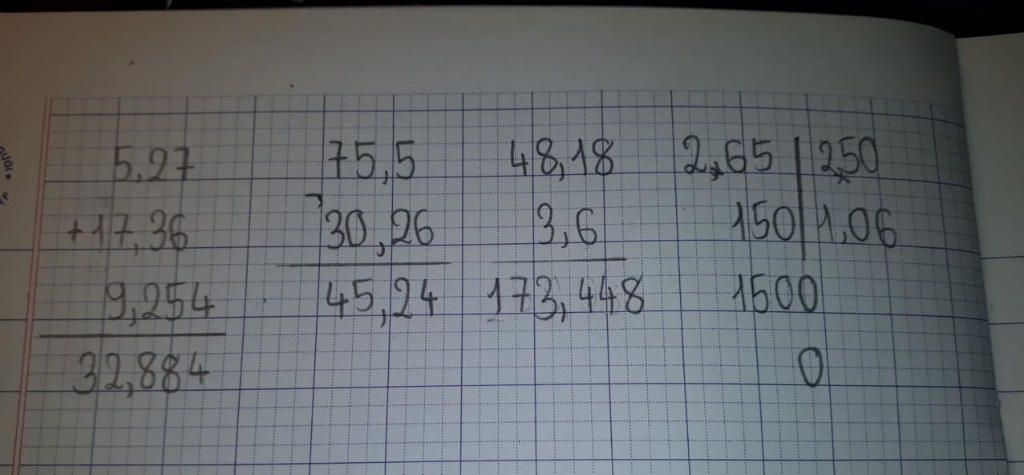 5,27 75,5 48,18 2,65 2,50
+17,36 - 30,26 3,6 150 1,06
9,254 45,24 173,448 1500
32,884 0